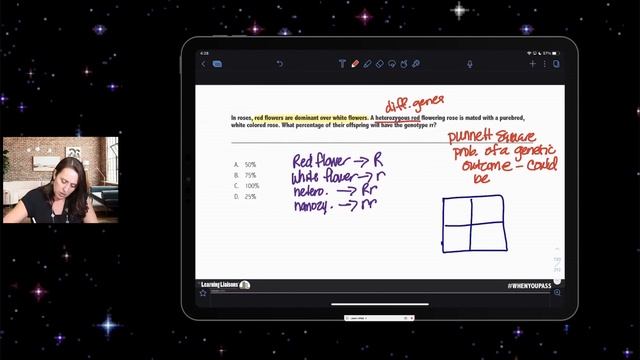 4:28
57%
diff. genes
In roses, red flowers are dominant over white flowers. A heterozygous red flowering rose is mated with a purebred,
white colored rose. What percentage of their offspring will have the genotype rr?
punnett square
prob. of a genetic
outcome - could
be
A. 50%
B. 75%
C. 100%
D. 25%
Red flower → R
White flower → r
hetero. → Rr
homozy. → rr
Learning Liaisons
#WHENYOUPASS